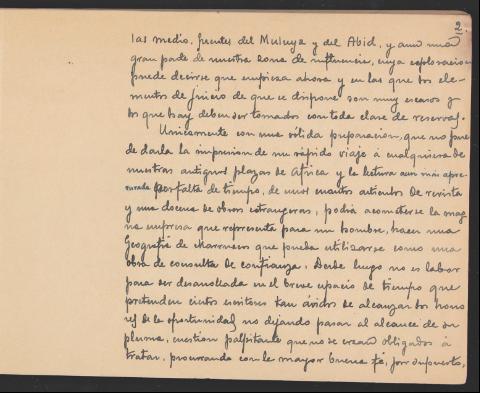 2.
las medio, fuentes del Muluya y del Abid, y aun una
gran parte de nuestra zona de influencia, cuya exploracion
puede decirse que empieza ahora y en las que los ele-
mentos de juicio de que se dispone son muy escasos y
los que hay deben ser tomados con toda clase de reservas.
Unicamente con una sólida preparacion, que no puede
darla la impresion de un rápido viaje á cualquiera de
nuestras antiguas plazas de Africa y la lectura aun más apre-
surada por falta de tiempo, de unos cuantos articulos de revista
y una docena de obras extrangeras, podria acometerse la mag
na empresa que representa para un hombre, hacer una
Geografia de Marruecos que pueda utilizarse como una
obra de consulta de confianza. Desde luego no es labor
para ser desarrollada en el breve espacio de tiempo que
pretenden ciertos escritores tan ávidos de alcanzar los hono
res de la oportunidad, no dejando pasar al alcance de su
pluma, cuestion palpitante que no se crean obligados á
tratar, procurando con la mayor buena fé, por supuesto,